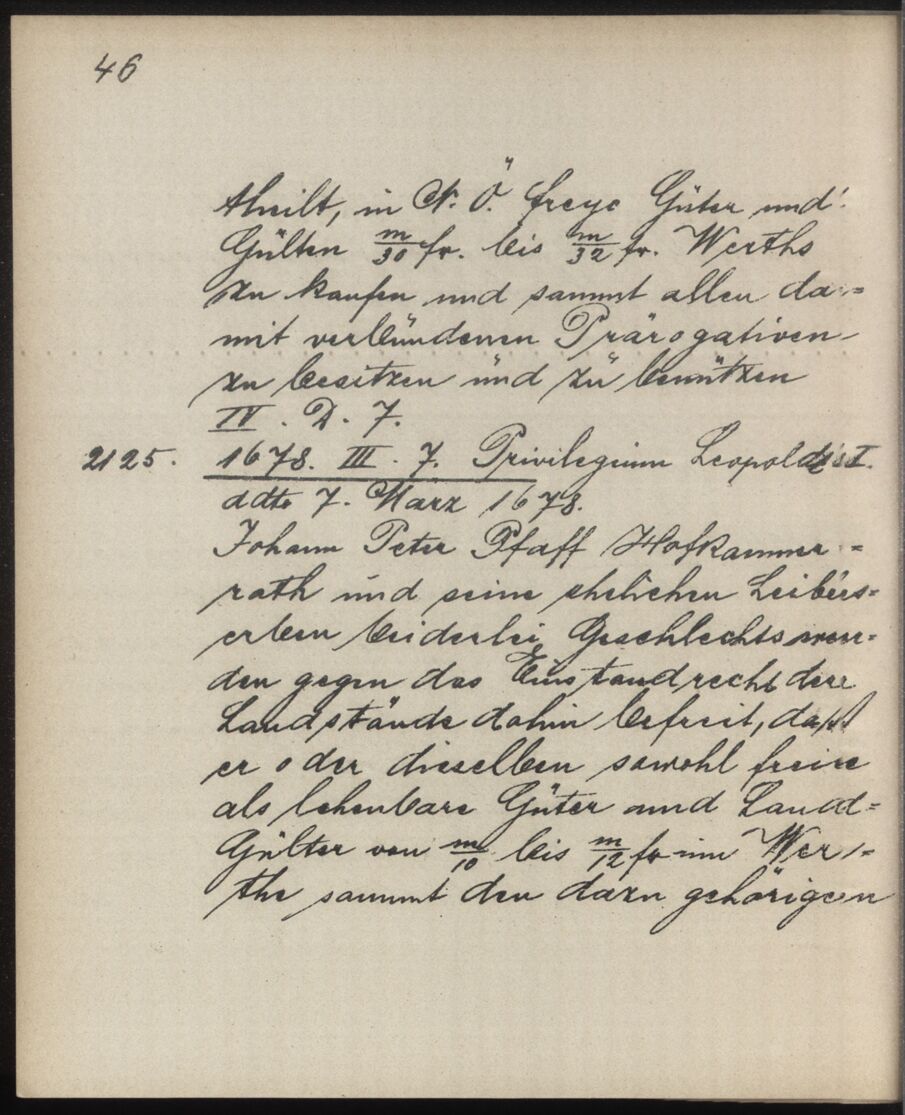 46
theilt, in N. Ö. freye Güter und
Gülten m/30 fr. bis m/32 fr. Werths
zu kaufen und sammt allen da=
mit verbundenen Prärogativen
zu besitzen und zu benützen
IV. D. 7.
2125. 1678. III. 7. Privilegium Leopolds I.
ddto 7. März 1678.
Johann Peter Pfaff Hofkammer=
rath und seine ehelichen Leibes=
erben beiderlei Geschlechts wer=
den gegen das Einstandrecht der
Landstände dahin befreit, daß
er oder dieselben sowohl freie
als lehenbare Güter und Land=
Gülten von m/10 bis m/12 fr im Wer=
the sammt den dazu gehörigen